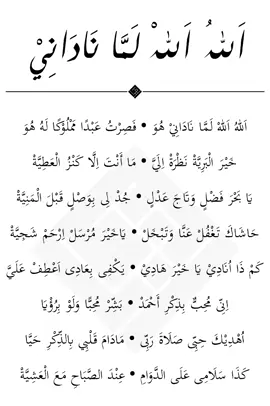 اَللهُ اَللهْ لَمَّا نَادَانِيْ
اَللهُ اَللهْ لَمَّا نَادَانِيْ هُوَ • فَصِرْتُ عَبْدًا مَمْلُوْكًا لَهُ هُوَ
خَيْرَ الْبَرِيَّةْ نَظْرَةْ اِلَيَّ • مَا أَنْتَ اِلَّا كَنْزُ الْعَطِيَّةْ
يَا بَحْرَ فَضْلٍ وَتَاجَ عَدْلٍ • جُدْ لِى بِوَصْلٍ قَبْلَ الْمَنِيَّةْ
حَاشَاكَ تَغْفُلْ عَنَّا وَتَبْخَلْ • يَاخَيْرَ مُرْسَلْ اِرْحَمْ شَجِيَّةْ
كَمْ ذَا أُنَادِيْ يَا خَيْرَ هَادِيْ • يَكْفِى بِعَادِى اَعْطِفْ عَلَيَّ
اِنِّى مُحِبٌّ بِذِكْرِ أَحْمَدْ • بَشِّرْ مُحِبًّا وَلَوْ بِرُؤْيَا
أُهْدِيْكَ حِبِّى صَلَاةَ رَبِّى • مَادَامَ قَلْبِي بِالذِّكْرِ حَيَّا
كَذَا سَلَامِى عَلَى الدَّوَامِ • عِنْدَ الصَّبَاحِ مَعَ الْعَشِيَّةْ